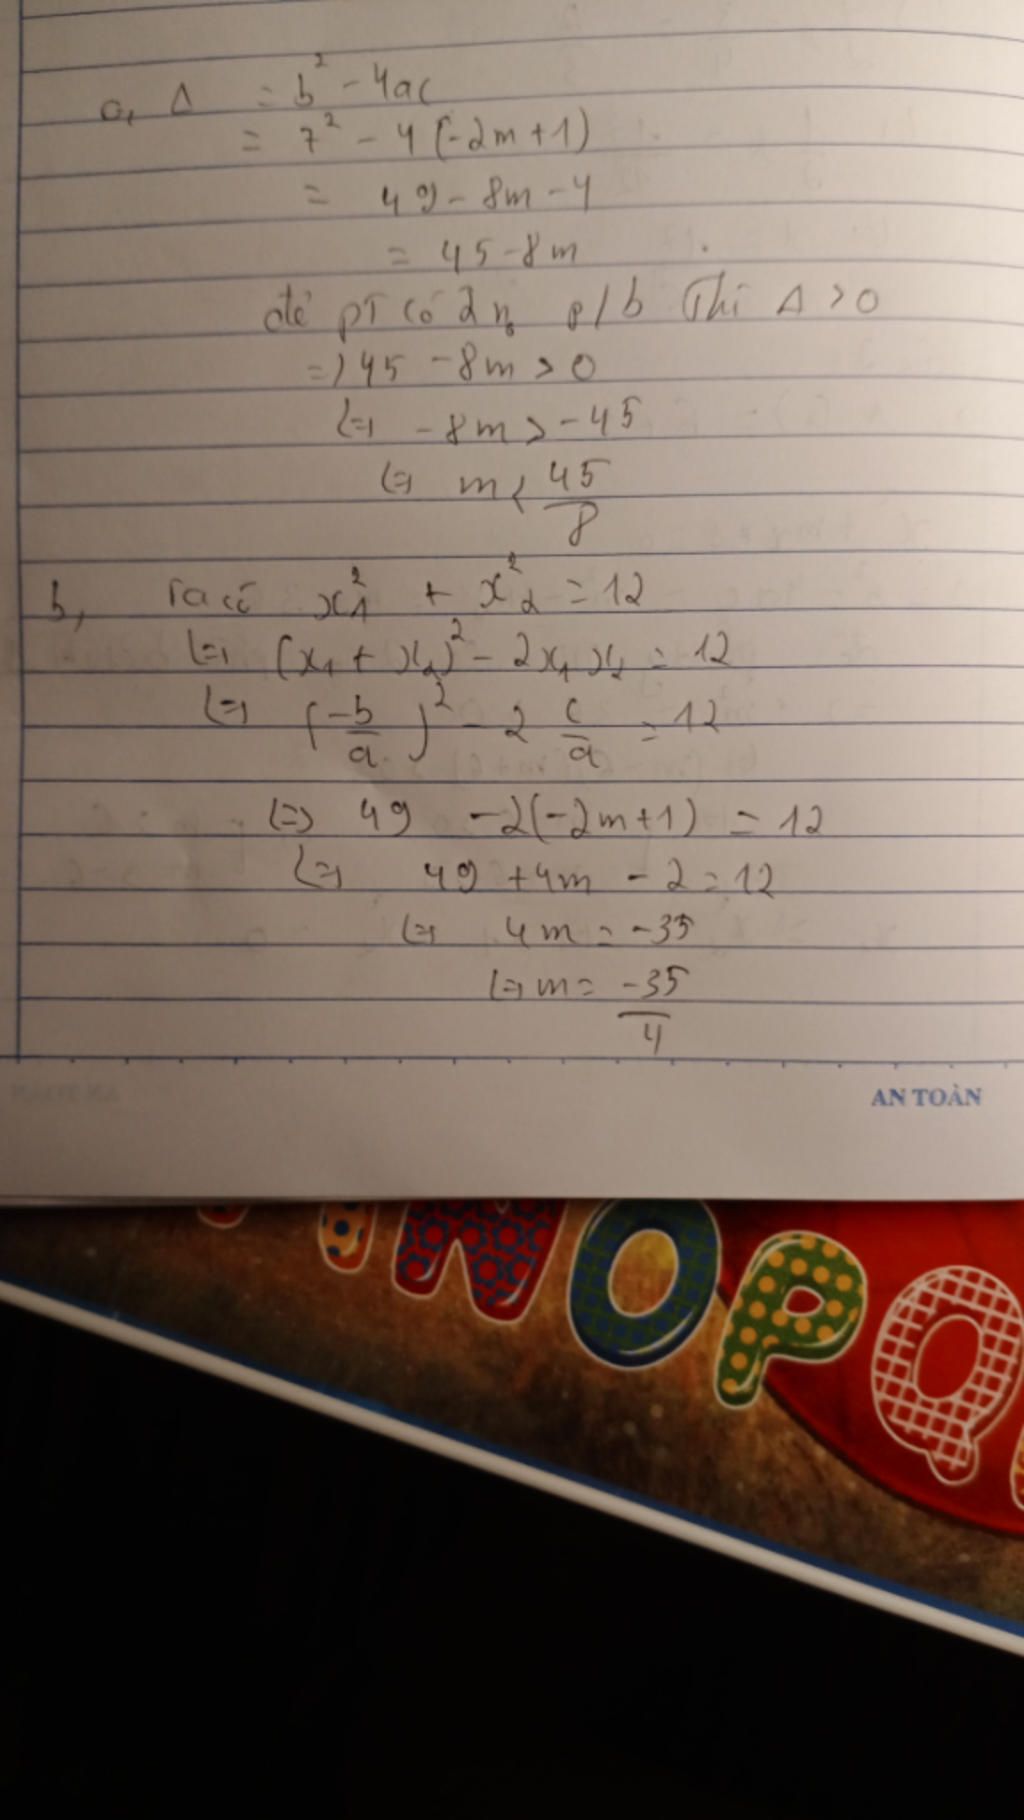 a, Δ = b² - 4ac
= 7² - 4(-2m+1)
= 49 - 8m - 4
= 45 - 8m
để pT có 2 n₀ p/b Thì Δ > 0
=) 45 - 8m > 0
(=) -8m > -45
(=) m < 45/8
b, Ta có x₁² + x₂² = 12
(=) (x₁ + x₂)² - 2x₁x₂ = 12
(=) (-b/a)² - 2 c/a = 12
(=) 49 - 2(-2m+1) = 12
(=) 49 + 4m - 2 = 12
(=) 4m = -35
(=) m = -35/4
AN TOÀN
NOPQ